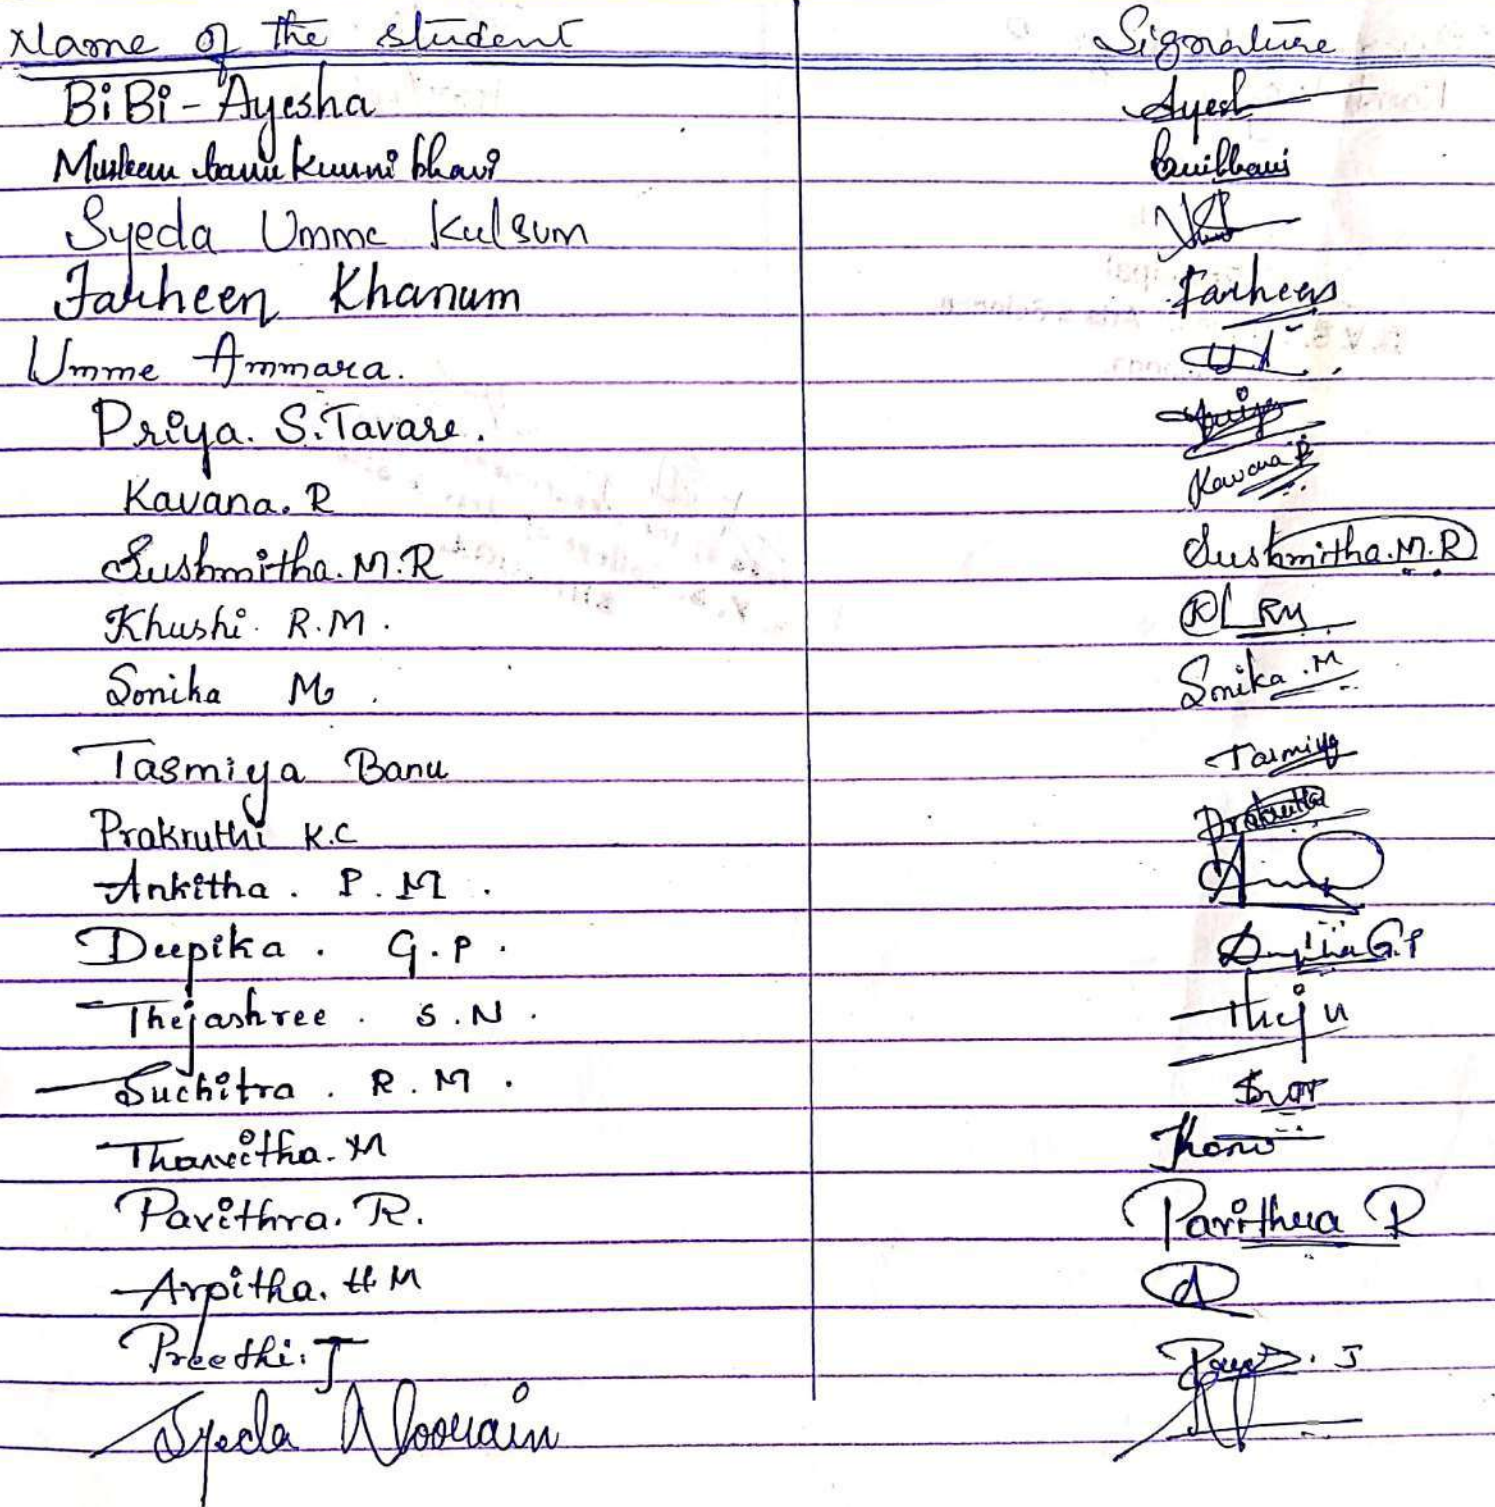 Name of the student Signature
BiBi - Ayesha Ayesh
Muskan banu kunni bhavi
Syeda Umme Kulsum
Farheen Khanum Farheen
Umme Ammara.
Priya. S. Tavare. Priya
Kavana. R Kavana R
Sushmitha. M. R Sushmitha. M. R
Khushi. R. M. RM
Sonika M. Sonika . M
Tasmiya Banu Tasmiya
Prakruthi K.C Prakruthi
Ankitha . P. M .
Deepika . G. P . Deepika G.P
Thejashree . S . N . Theju
Suchitra . R . M .
Thanvitha. M
Pavithra. R. Pavithra R
Arpitha. H M A
Preethi. J
Syeda Noorain